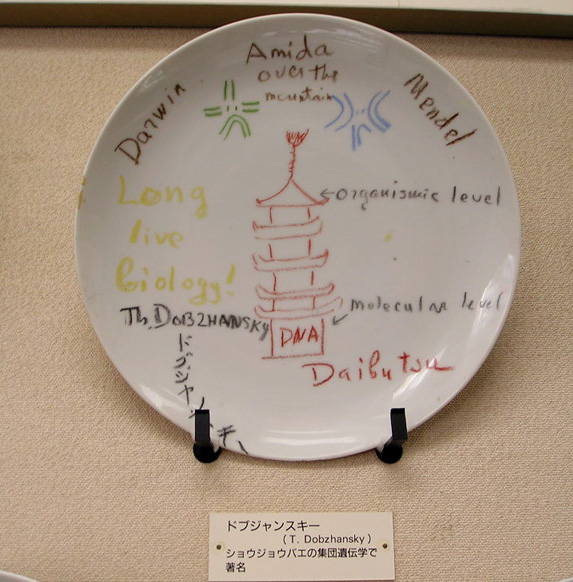 Amida
over the
mountain
Darwin
Mendel
Long
live
biology!
←organismic level
Th. DOBZHANSKY
ドブジャンスキー
molecular level
DNA
Daibutsu
ドブジャンスキー
(T. Dobzhansky)
ショウジョウバエの集団遺伝学で
著名